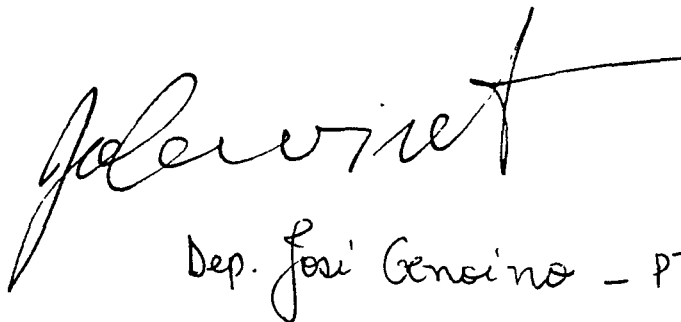 Dep. José Genoino - PT